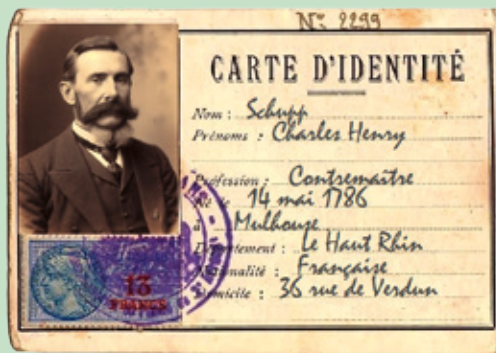 Nº 2299
CARTE D'IDENTITÉ
Nom : Schupp
Prénoms : Charles Henry
Profession : Contremaître
Né le 14 mai 1786
à Mulhouse
Département : le Haut Rhin
Nationalité : Française
Domicile : 36 rue de Verdun
13
FRANCS